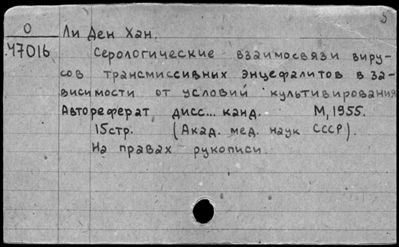 5
О
47016
Ли Ден Хан.
Серологические взаимосвязи виру-
сов трансмиссивных энцефалитов в за-
висимости от условий культивирования
Автореферат дисс... канд. М, 1955.
15стр. (Акад. мед. наук СССР).
На правах рукописи.